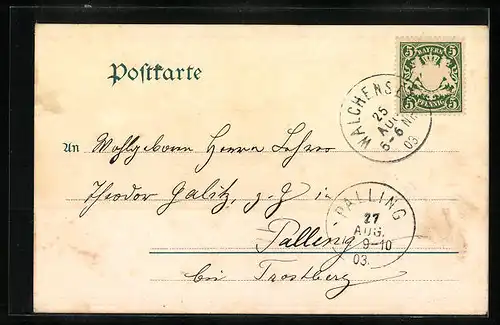 BAYERN
5 5
5 PFENNIG 5
Postkarte
WALCHENSEE
25
AUG
5-6 Nm
03
An Wohlgeboren Herrn Lehrer
Theodor Galitz, z. Z in
PALLING
27
AUG.
9-10
03.
Palling
bei Trostberg